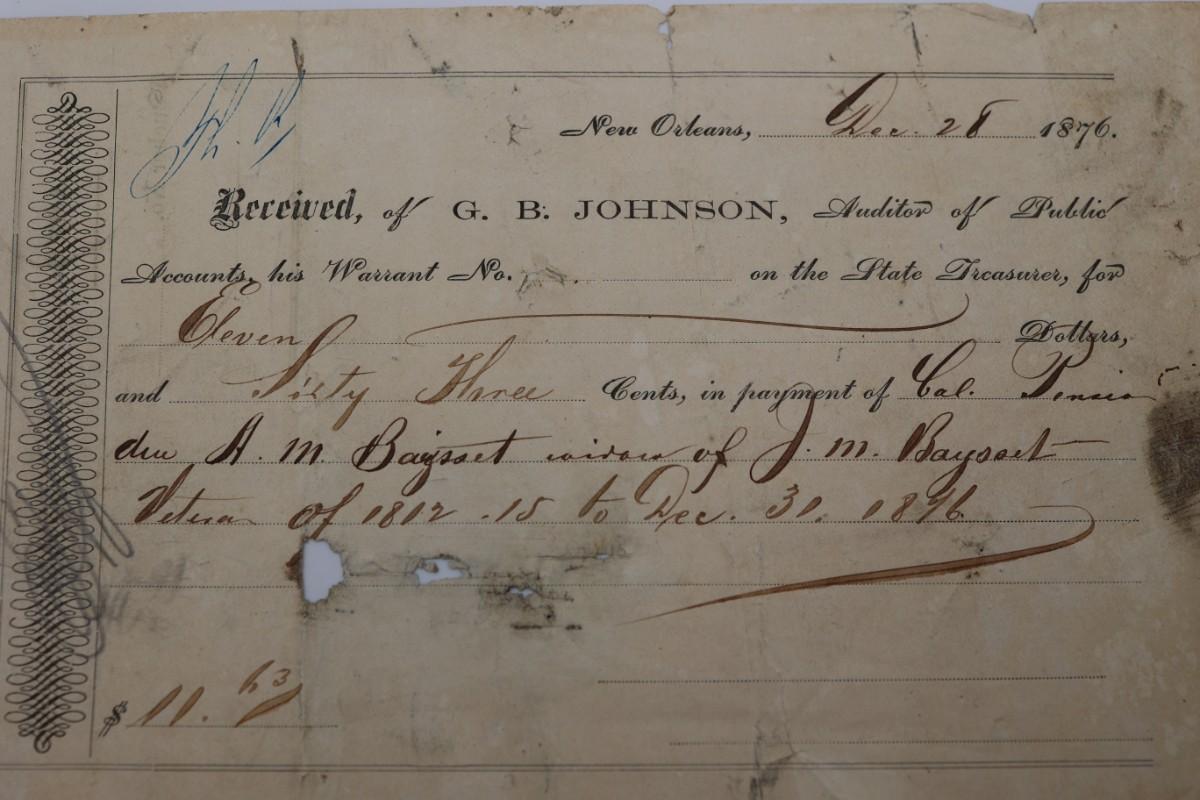 New Orleans, Dec. 28 1876.
Received, of G. B. JOHNSON, Auditor of Public
Accounts, his Warrant No. on the State Treasurer, for
Eleven Dollars,
and Sixty Three Cents, in payment of Bal. Pension
due A. M. Baysset widow of J. M. Baysset
Veteran of 1812.15 to Dec. 31. 1876
$ 11.63